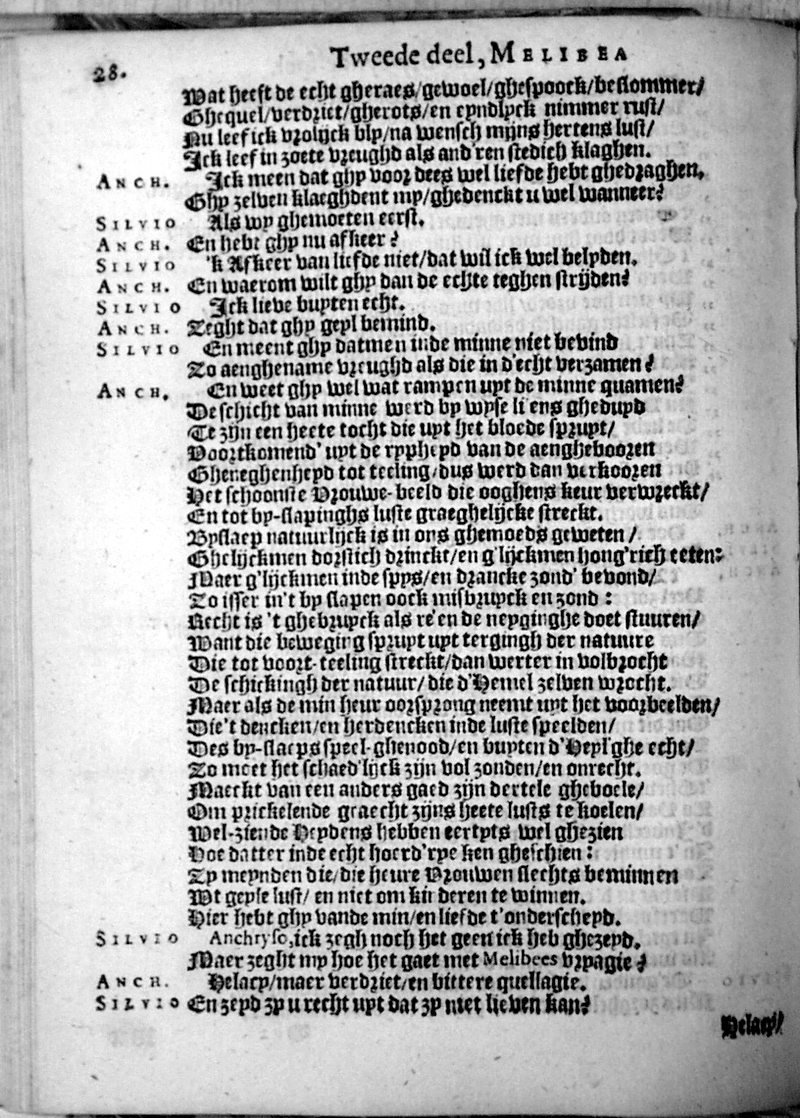 28.
Tweede deel, MELIBEA
Wat heeft de echt gheraes/gewoel/ghespoock/beslommer/
Ghequel/verdriet/gherots/en eyndlyck nimmer rust/
Nu leef ick vrolijck bly/na wensch mijns hertens lust/
Ick leef in zoete vreughd als and'ren stedich klaghen.
ANCH. Ick meen dat ghy voor dees wel liefde hebt ghedraghen,
Ghy zelven klaeghdent my/ghedenckt u wel wanneer?
SILVIO Als wy ghemoeten eerst.
ANCH. En hebt ghy nu afkeer?
SILVIO 'k Afkeer van liefde niet/dat wil ick wel belyden.
ANCH. En waerom wilt ghy dan de echte teghen strijden?
SILVIO Ick lieve buyten echt.
ANCH. Zeght dat ghy geyl bemind.
SILVIO En meent ghy datmen inde minne niet bevind
Zo aenghename vreughd als die in d'echt verzamen?
ANCH. En weet ghy wel wat rampen uyt de minne quamen?
De schicht van minne werd by wyse li'ens ghedupd
Te zijn een heete tocht die uyt het bloede spruyt/
Voortkomend' uyt de rypheyd van de aengheboozen
Gheneghenheyd tot teeling/dus werd dan verkoozen
Het schoonste Vrouwe-beeld die ooghens keur verwreckt/
En tot by-slapinghs luste graeghelijcke streckt.
Byslaep natuurlijck is in ons ghemoeds geweten/
Ghelijckmen dorstich drinckt/en g'lijckmen hong'rich eeten:
Maer g'lijckmen inde spys/en drancke zond' bevond/
Zo isser in't by slapen oock misbruyck en zond:
Recht is 't ghebruyck als re'en de neyginghe doet stuuren/
Want die beweging spruyt uyt tergingh der natuure
Die tot voort-teeling streckt/dan werter in volbrocht
De schickingh der natuur/die d'Hemel zelven wrocht.
Maer als de min heur oorsprong neemt uyt het voorbeelden/
Die't dencken/en herdencken inde luste speelden/
Des by-slaeps speel-ghenood/en buyten d'Heyl'ghe echt/
Zo moet het schaed'lijck zijn vol zonden/en onrecht.
Maeckt van een anders gaed zijn dertele ghehoele/
Om prickelende graecht zijns heete lusts te koelen/
Wel-ziende Heydens hebben eertyts wel ghezien
Hoe datter inde echt hoerd'rye ken gheschien:
Zy meynden die/die heure Vrouwen slechts beminnen
Wt geyle lust/en niet om kinderen te winnen.
Hier hebt ghy vande min/en liefde t'onderscheyd.
SILVIO Anchryso, ick zegh noch het geen ick heb ghezeyd.
Maer zeght my hoe het gaet met Melibees vryagie?
ANCH. Helaey/maer verdriet/en bittere quellagie.
SILVIO En zeyd zy u recht uyt dat zy niet lieven kan?
Helaey/